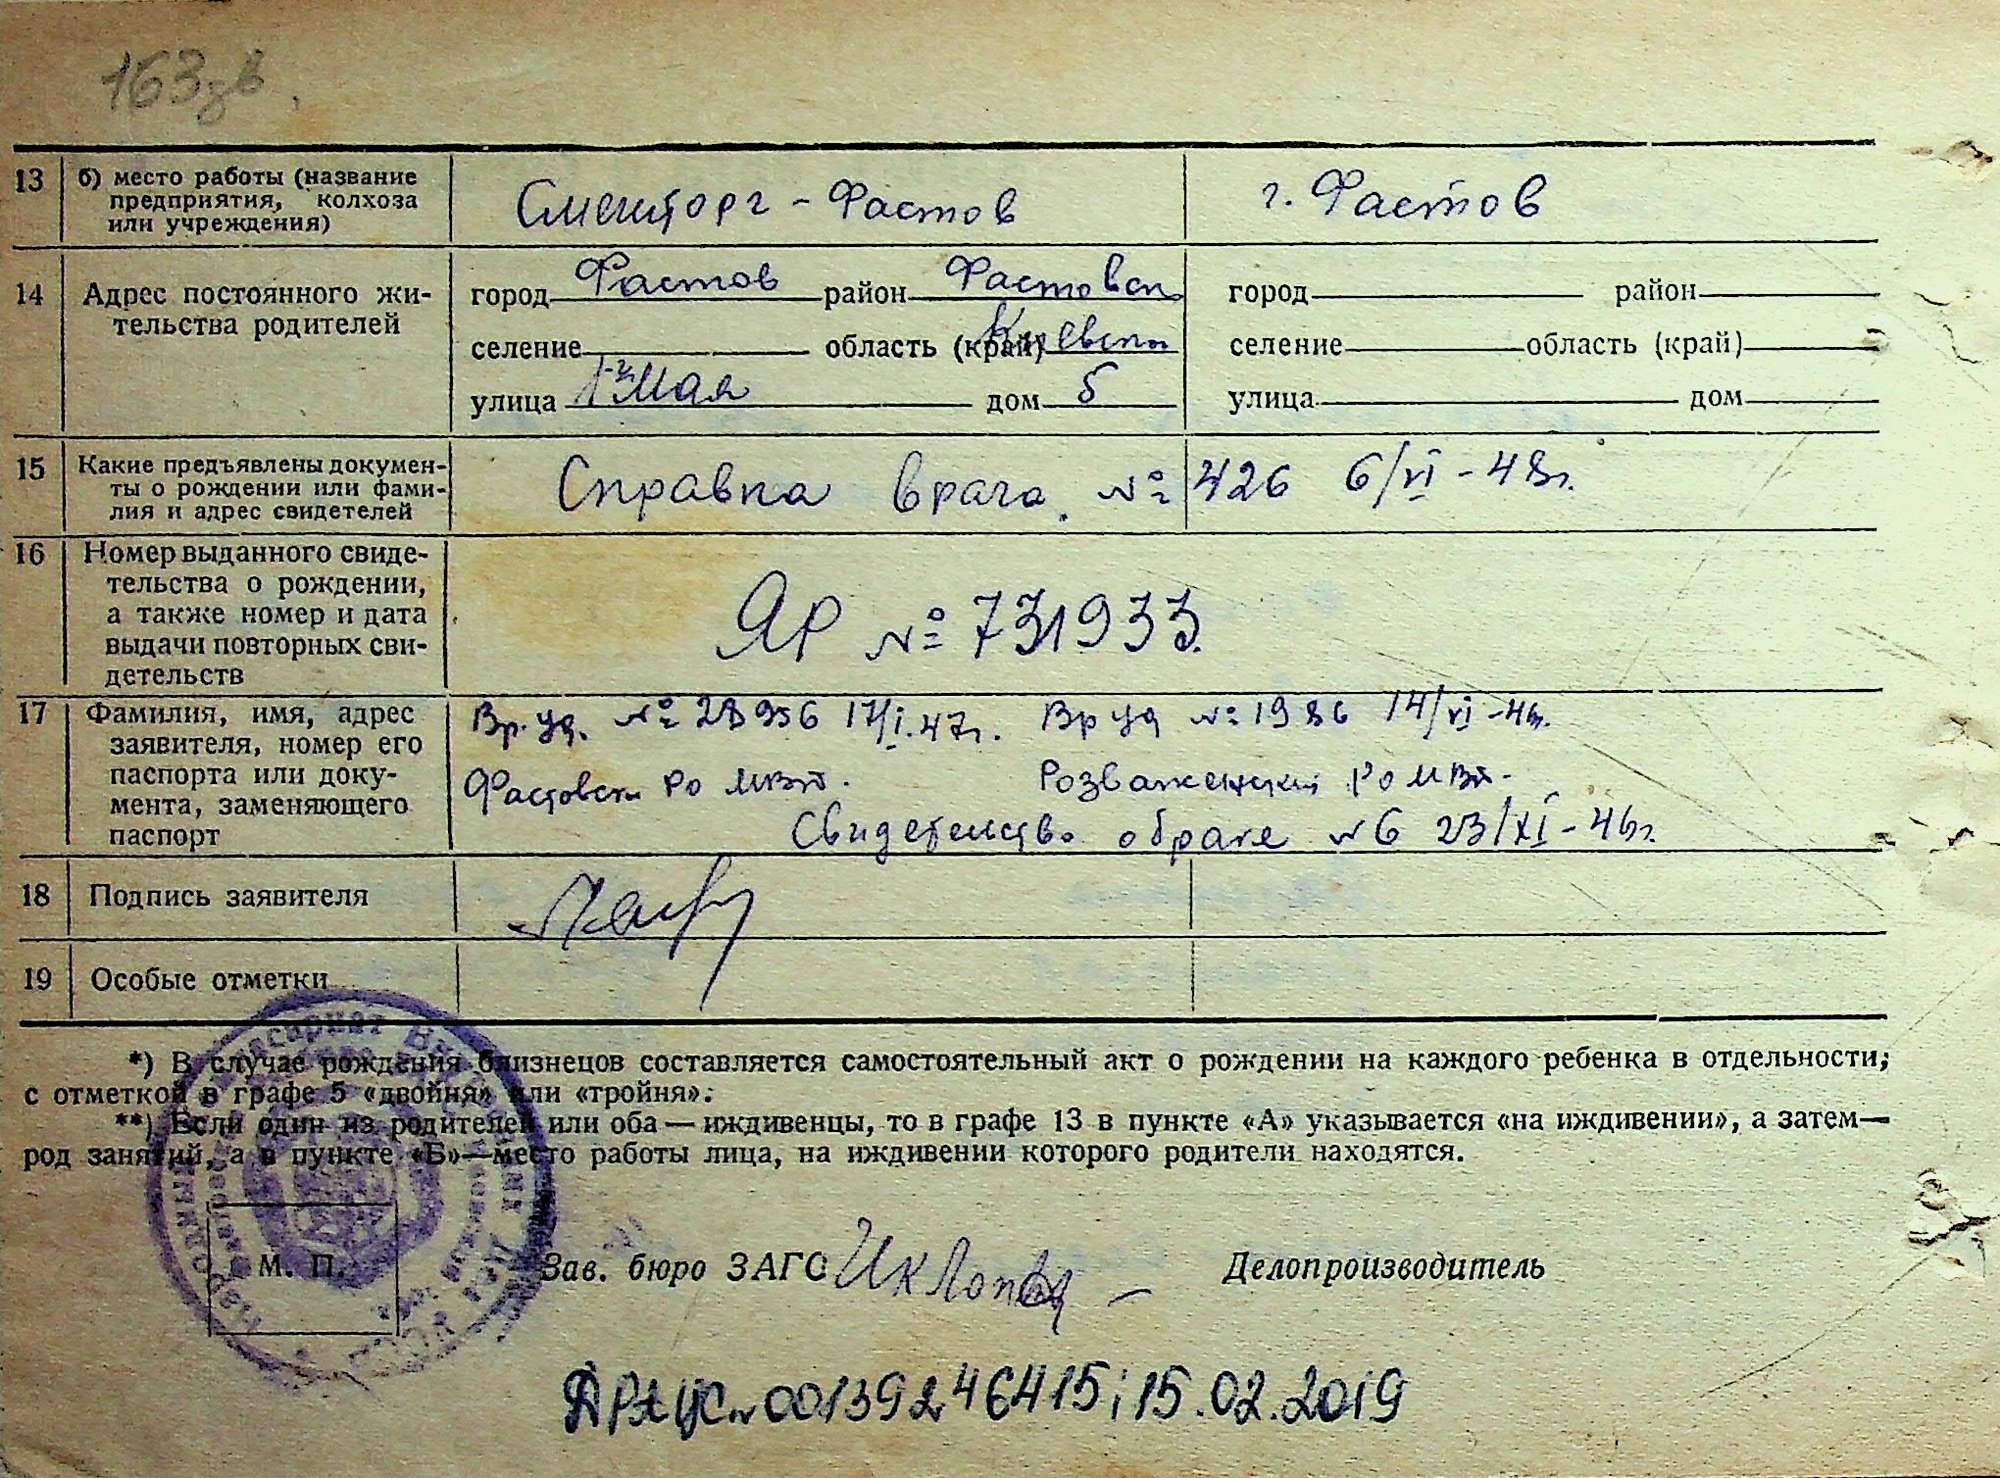 163 зв.
13 б) место работы (название предприятия, колхоза или учреждения) Смешторг - Фастов г. Фастов
14 Адрес постоянного жительства родителей
город Фастов район Фастовск город район
селение область (край) Киевски селение область (край)
улица 1-го Мая дом 5 улица дом
15 Какие предъявлены докумен-
ты о рождении или фами-
лия и адрес свидетелей
Справка врача. № 426 6/VI - 48г.
16 Номер выданного свиде-
тельства о рождении,
а также номер и дата
выдачи повторных сви-
детельств
ЯР № 731933.
17 Фамилия, имя, адрес
заявителя, номер его
паспорта или доку-
мента, заменяющего
паспорт
Вр. уд. № 28956 17/I.47г. Вр уд № 1986 14/VI-46г.
Фастовски РО МВД. Розваженский РО МВД.
Свидетельство о браке № 6 23/XI - 46г.
18 Подпись заявителя
19 Особые отметки
*) В случае рождения близнецов составляется самостоятельный акт о рождении на каждого ребенка в отдельности,
с отметкой в графе 5 «двойня» или «тройня».
**) Если один из родителей или оба — иждивенцы, то в графе 13 в пункте «А» указывается «на иждивении», а затем—
род занятий, а в пункте «Б»—место работы лица, на иждивении которого родители находятся.
М. П. Зав. бюро ЗАГС Делопроизводитель
ДРАЦС № 00139246415; 15.02.2019